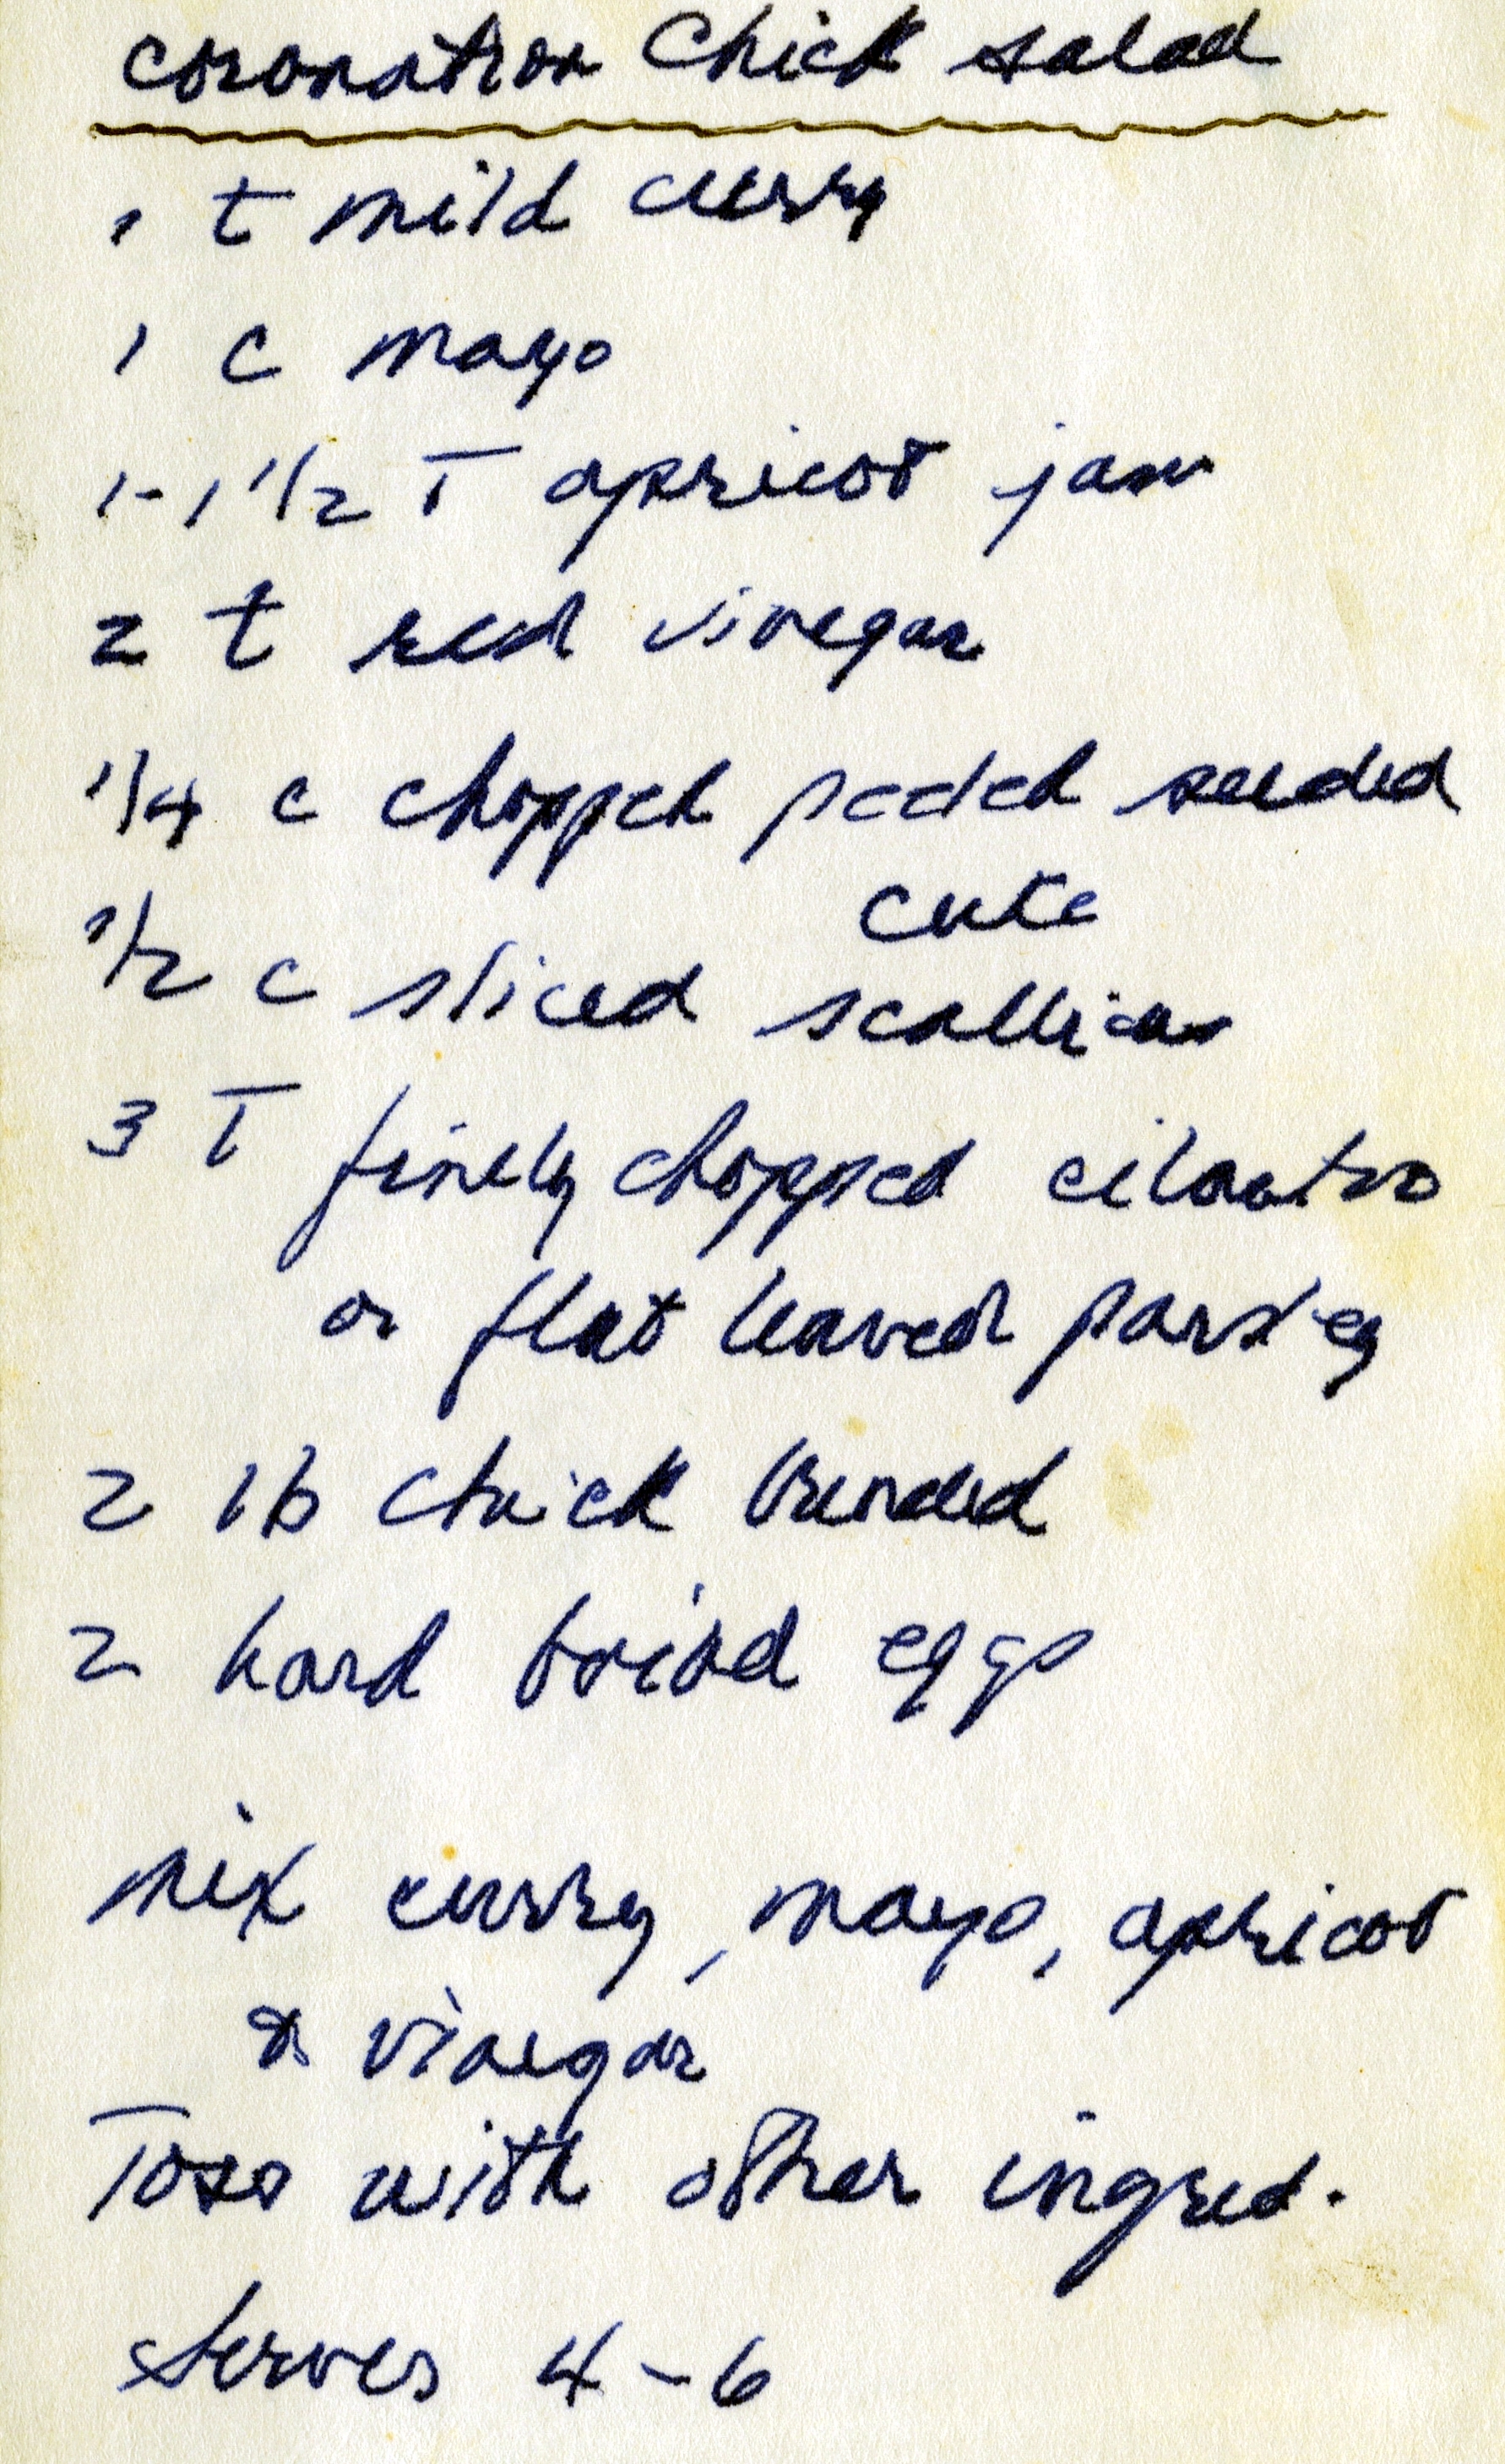 Coronation Chick salad
1 t mild curry
1 c mayo
1-1 1/2 T apricot jam
2 t red vinegar
1/4 c chopped peeled seeded
cuke
1/2 c sliced scallions
3 T finely chopped cilantro
or flat leaved parsley
2 lb chick
2 hard boiled eggs
mix curry, mayo, apricot
& vinegar
Toss with other ingred.
Serves 4-6